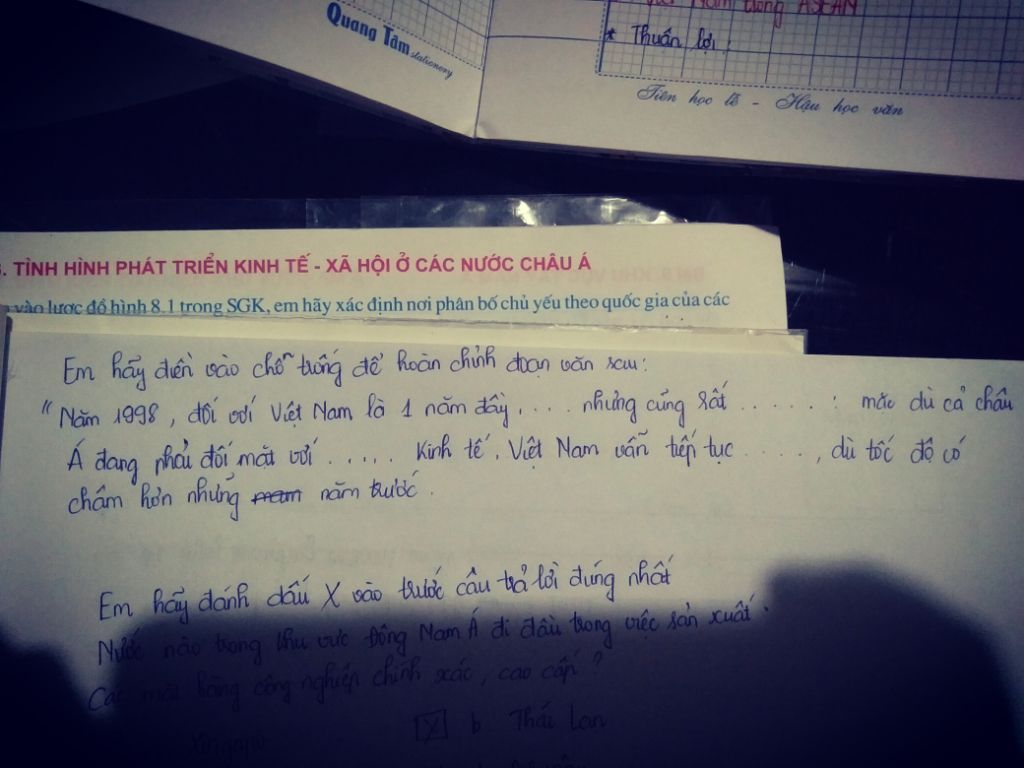 Việt Nam trong ASEAN
* Thuấn lợi:
Quang Tâm stationery
Tiên học lễ - Hậu học văn
3. TÌNH HÌNH PHÁT TRIỂN KINH TẾ - XÃ HỘI Ở CÁC NƯỚC CHÂU Á
vào lược đồ hình 8.1 trong SGK, em hãy xác định nơi phân bố chủ yếu theo quốc gia của các
Em hãy điền vào chỗ trống để hoàn chỉnh đoạn văn sau:
"Năm 1998, đối với Việt Nam là 1 năm đầy .... nhưng cũng rất ......: mặc dù cả châu
Á đang phải đối mặt với ..... Kinh tế, Việt Nam vẫn tiếp tục ....., dù tốc độ có
chậm hơn những năm trước.
Em hãy đánh dấu X vào trước câu trả lời đúng nhất
Nước nào trong khu vực Đông Nam Á đi đầu trong việc sản xuất
Các mặt hàng công nghiệp chính xác, cao cấp?
Xingapo
X b. Thái Lan